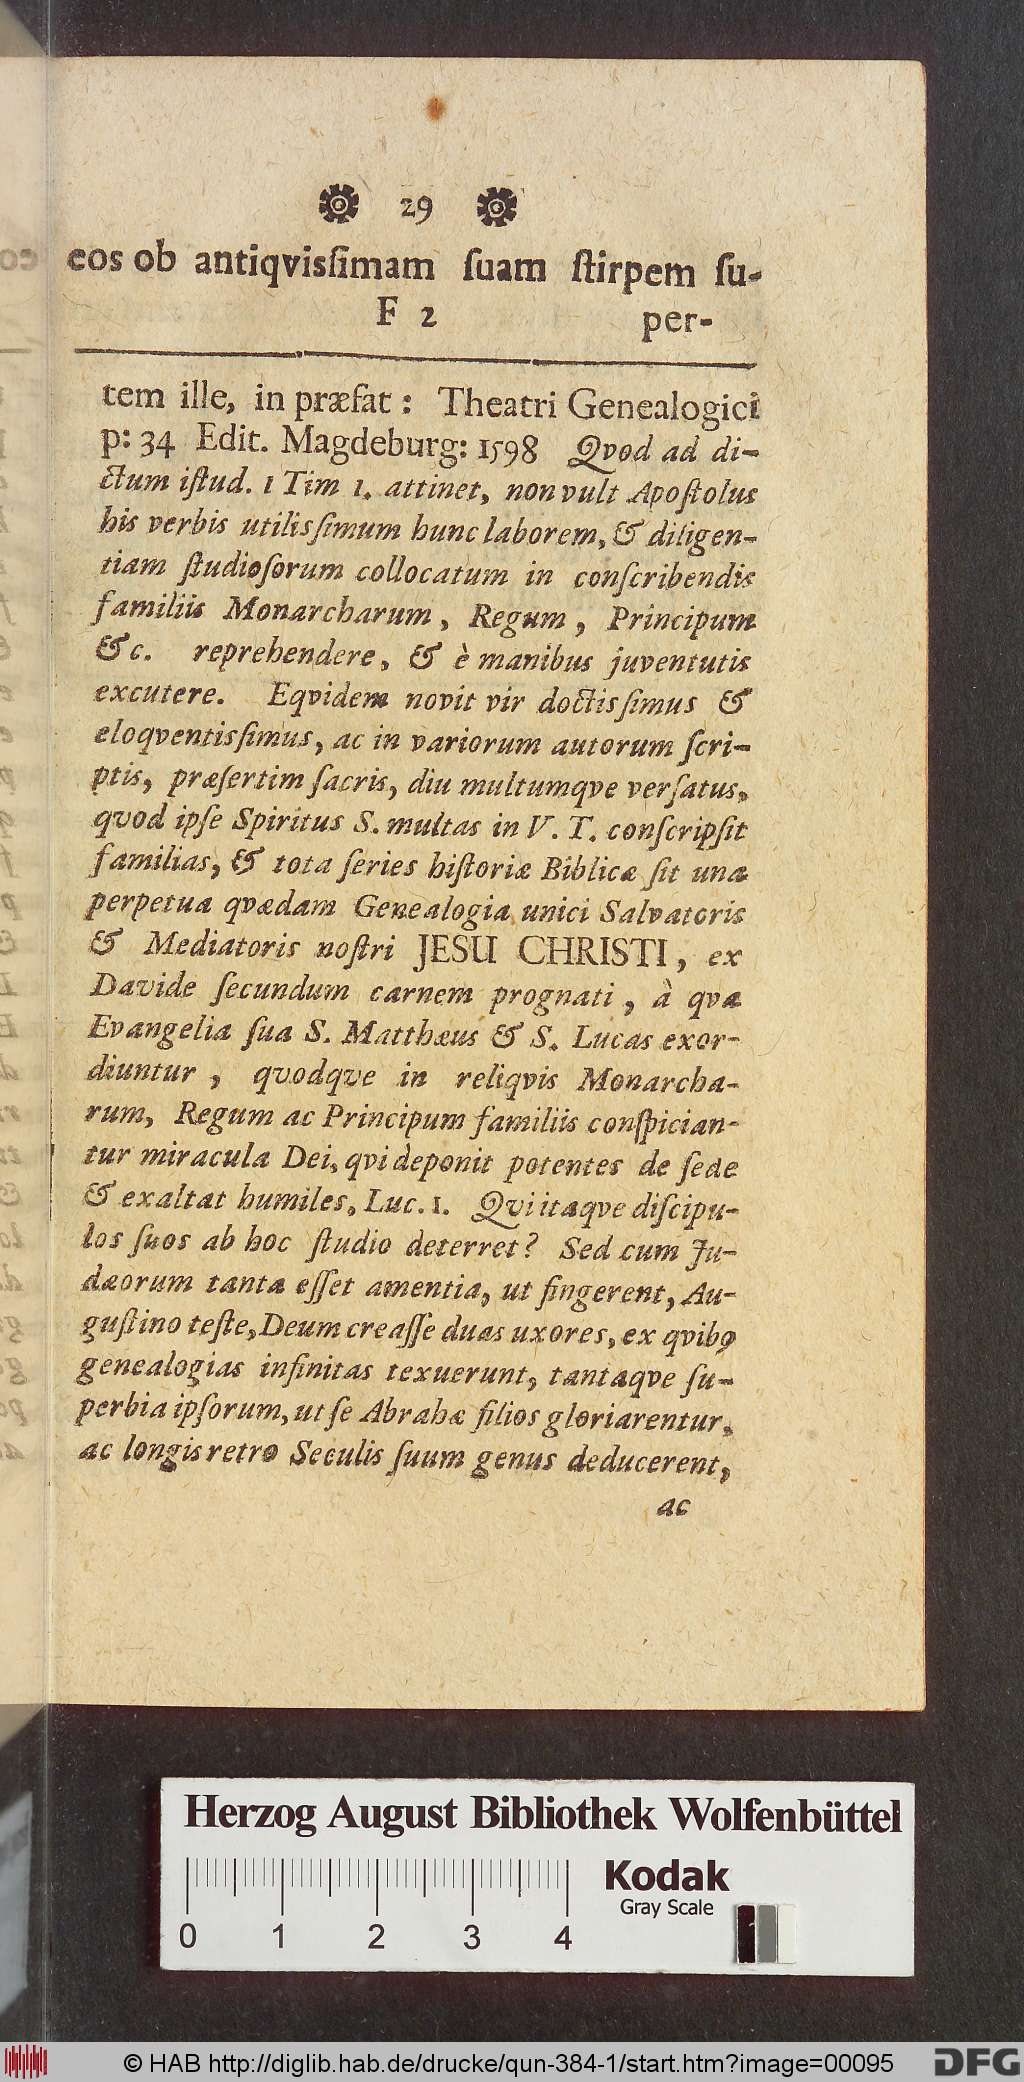 29
eos ob antiqvisſimam ſuam ſtirpem ſu-
F 2 per-
tem ille, in præfat: Theatri Genealogici
p: 34 Edit. Magdeburg: 1598 Qvod ad di-
ctum iſtud. 1 Tim 1. attinet, non vult Apoſtolus
his verbis utilisſimum hunc laborem, & diligen-
tiam ſtudioſorum collocatum in conſcribendis
familiis Monarcharum, Regum, Principum
&c. reprehendere, & è manibus juventutis
excutere. Eqvidem novit vir doctisſimus &
eloqventisſimus, ac in variorum autorum ſcri-
ptis, præſertim ſacris, diu multumqve verſatus,
quod ipſe Spiritus S. multas in V. T. conſcripſit
familias, & tota ſeries hiſtoriæ Biblicæ ſit una
perpetua qvædam Genealogia unici Salvatoris
& Mediatoris noſtri JESU CHRISTI, ex
Davide ſecundum carnem prognati, à qva
Evangelia ſua S. Matthæus & S. Lucas exor-
diuntur, quodqve in reliqvis Monarcha-
rum, Regum ac Principum familiis conſpician-
tur miracula Dei, qvi deponit potentes de ſede
& exaltat humiles, Luc. 1. Qvi itaqve diſcipu-
los ſuos ab hoc ſtudio deterret? Sed cum Ju-
dæorum tanta eſſet amentia, ut fingerent, Au-
guſtino teſte, Deum creaſſe duas uxores, ex qvibꝰ
genealogias infinitas texuerunt, tantaqve ſu-
perbia ipſorum, ut ſe Abrahæ filios gloriarentur,
ac longis retro Seculis ſuum genus deducerent,
ac
Herzog August Bibliothek Wolfenbüttel
Kodak
Gray Scale
0 1 2 3 4
© HAB http://diglib.hab.de/drucke/qun-384-1/start.htm?image=00095
DFG